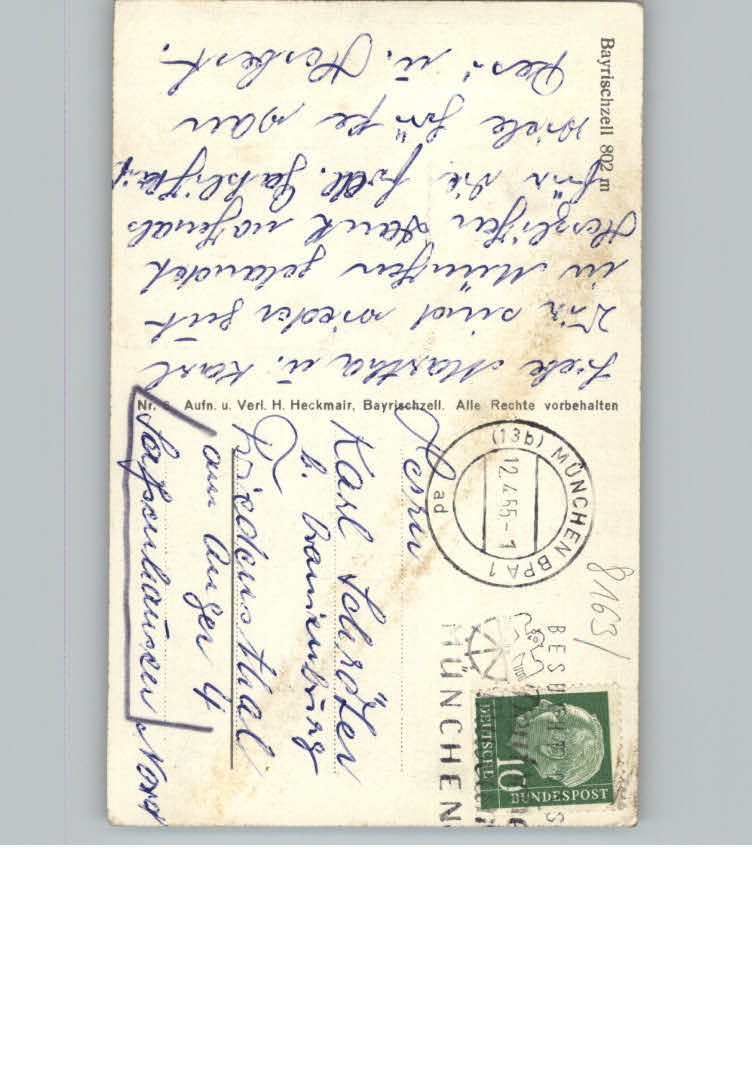 Bayrischzell 802 m
Liebe Martha u. Karl
Wir sind wieder gut
in München gelandet
Herzlichen Dank nochmals
für die frdl. Gastlichkeit
viele Grüße von
Resi u. Herbert.
Nr. Aufn. u. Verl. H. Heckmair, Bayrischzell. Alle Rechte vorbehalten
(13b) MÜNCHEN BPA 1
12.4.55-1
ad
8163/
BESUCHT
MÜNCHEN
DEUTSCHE
BUNDESPOST
10
Herrn
Karl Schröter
b. Oranienburg
Friedensthal
am Anger 4
Sachsenhausen Nord